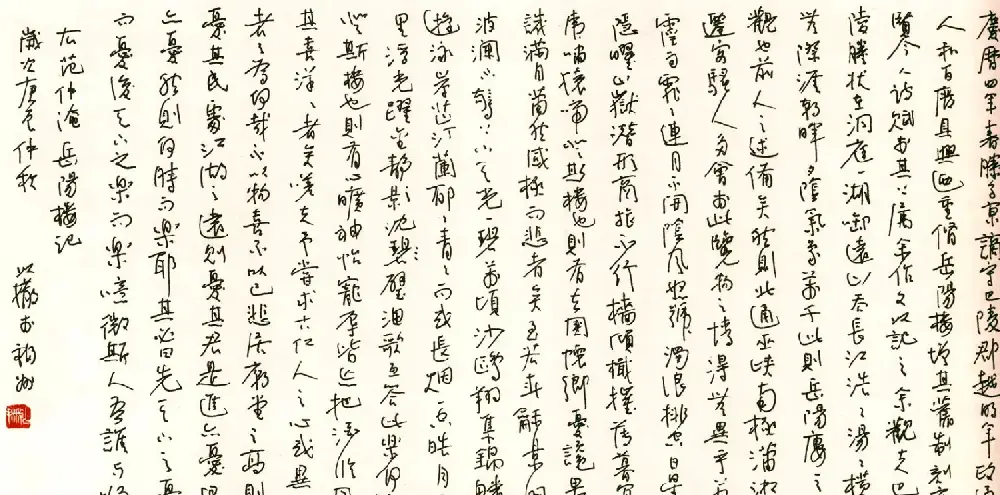 慶曆四年春滕子京謫守巴陵郡越明年政通
人和百廢具興迺重脩岳陽樓增其舊制刻唐
賢今人詩賦於其上屬余作文以記之余觀夫巴
陵勝狀在洞庭一湖啣遠山吞長江浩々湯々橫
無際涯朝暉夕陰氣象萬千此則岳陽樓之
觀也前人之述備矣然則北通巫峽南極瀟湘
遷客騷人多會於此覽物之情得無異乎若
霪雨霏々連月不開陰風怒號濁浪排空日星
隱曜山嶽潛形商旅不行檣傾檝摧薄暮冥
虎嘯猿啼登斯樓也則有去國懷鄉憂讒畏
譏滿目蕭然感極而悲者矣至若春和景明
波瀾不驚上下天光一碧萬頃沙鷗翔集錦鱗
游泳岸芷汀蘭郁々青々而或長煙一空皓月
里浮光躍金靜影沈璧漁歌互答此樂何
登斯樓也則有心曠神怡寵辱皆忘把酒臨風
其喜洋々者矣嗟夫予嘗求古仁人之心或異
者之為何哉不以物喜不以己悲居廟堂之高則
憂其民處江湖之遠則憂其君是進亦憂退
亦憂然則何時而樂耶其必曰先天下之憂
而憂後天下之樂而樂噫微斯人吾誰與歸
右范仲淹岳陽樓記
歲次庚 仲秋